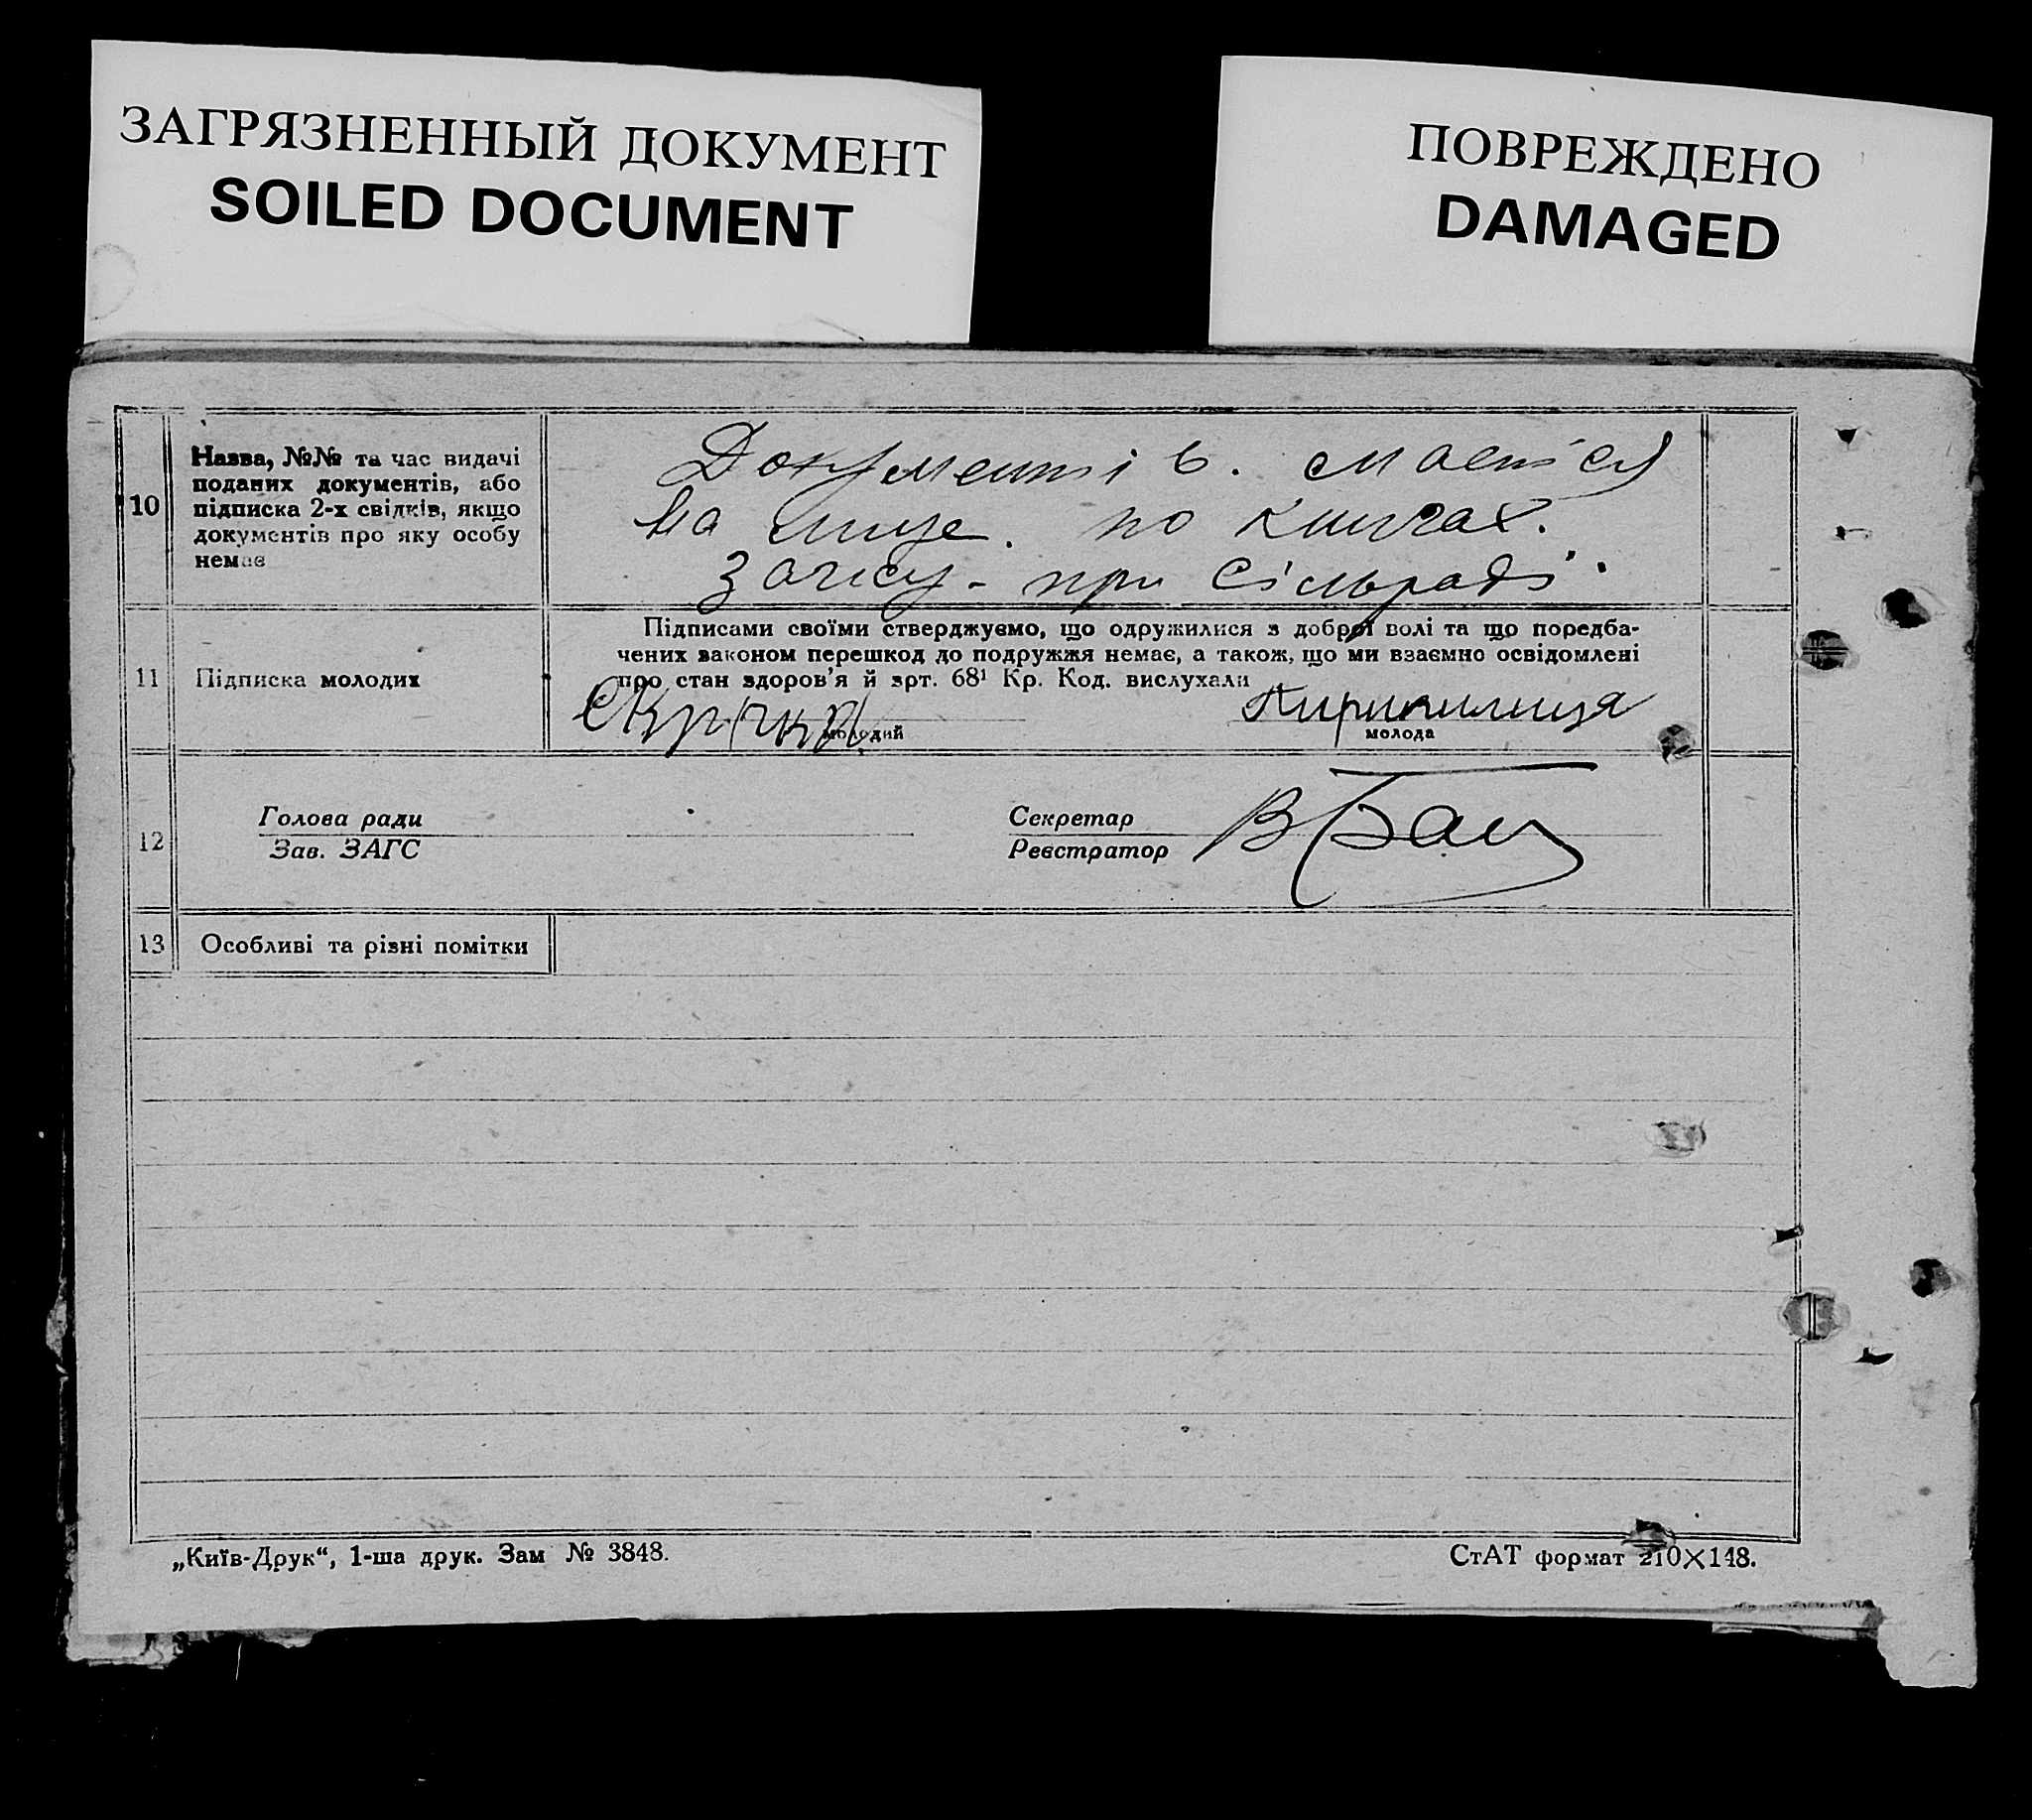 ЗАГРЯЗНЕННЫЙ ДОКУМЕНТ
SOILED DOCUMENT
ПОВРЕЖДЕНО
DAMAGED
10
Назва, №№ та час видачі
поданих документів, або
підписка 2-х свідків, якщо
документів про яку особу
немає
Документів.
на лице. по книгах.
Загсу - при Сільраді.
11
Підписка молодих
Підписами своїми стверджуємо, що одружилися з доброї волі та що поредба-
чених законом перешкод до подружжя немає, а також, що ми взаємно освідомлені
про стан здоров'я й арт. 68¹ Кр. Код. вислухали
молодий
молода
12
Голова ради
Зав. ЗАГС
Секретар
Реєстратор
13
Особливі та різні помітки
„Київ-Друк“, 1-ша друк. Зам № 3848.
СтАТ формат 210×148.